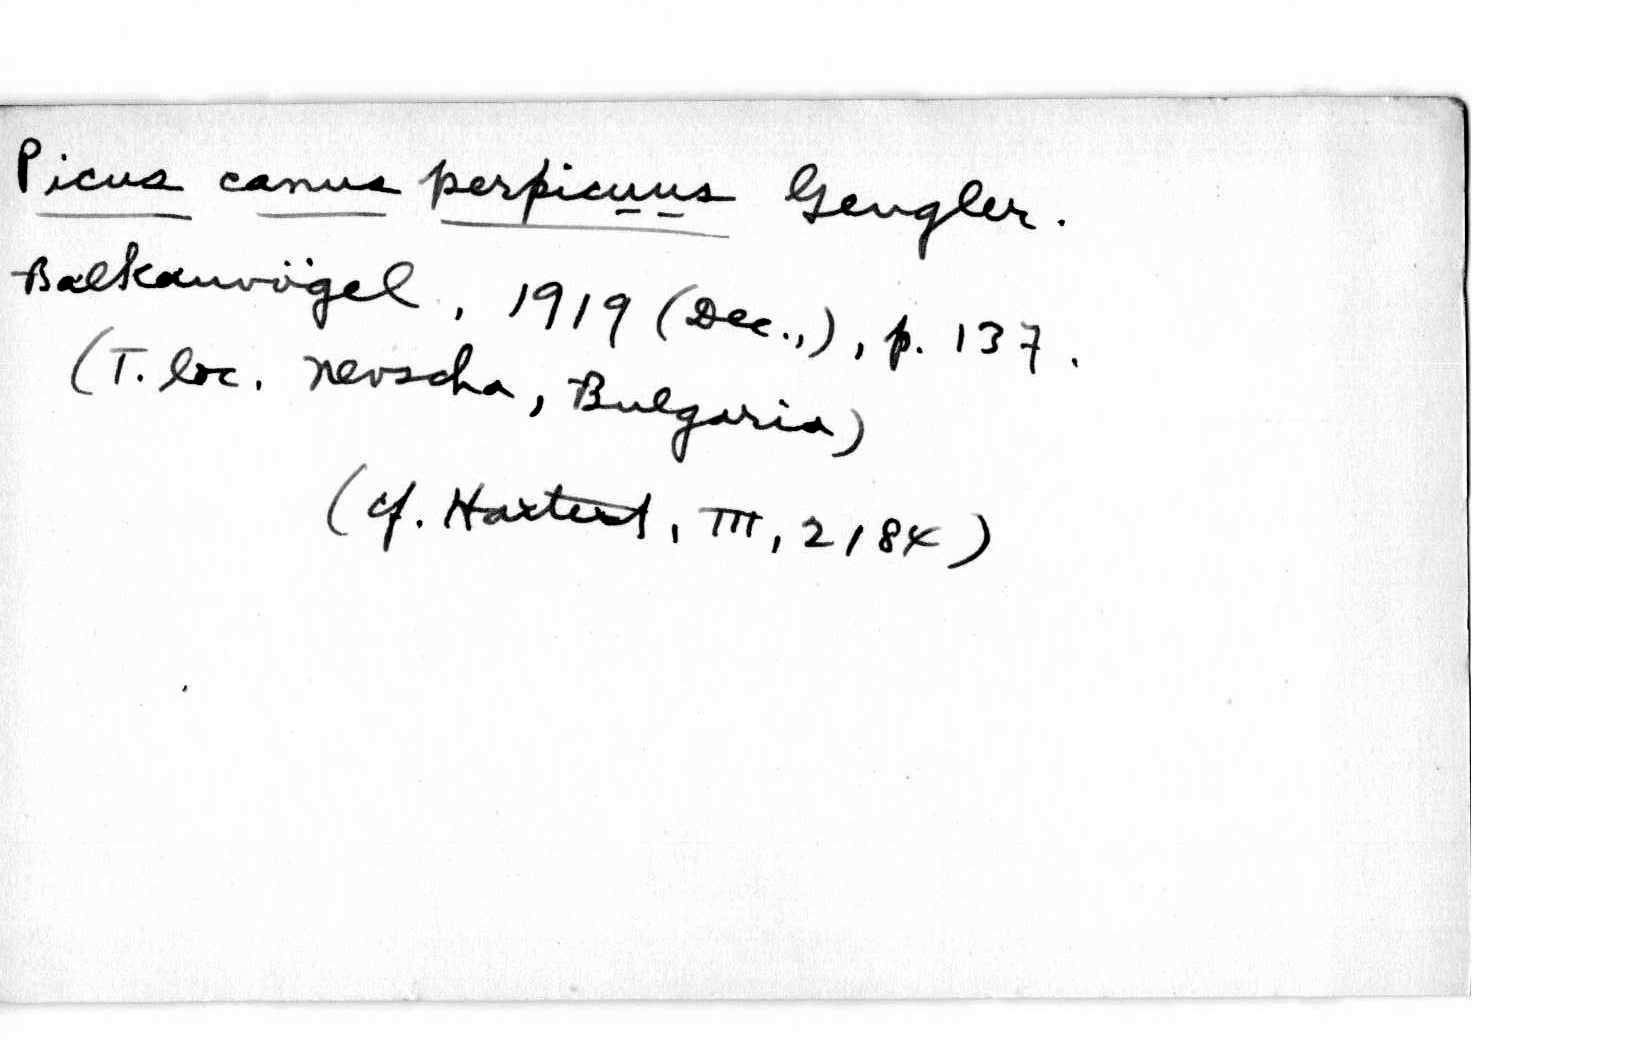 Picus canus perpicuus Gengler.
Balkanvögel, 1919 (Dec.,), p. 137.
(T. loc. Nevscha, Bulgaria)
(cf. Hartert, III, 2184)